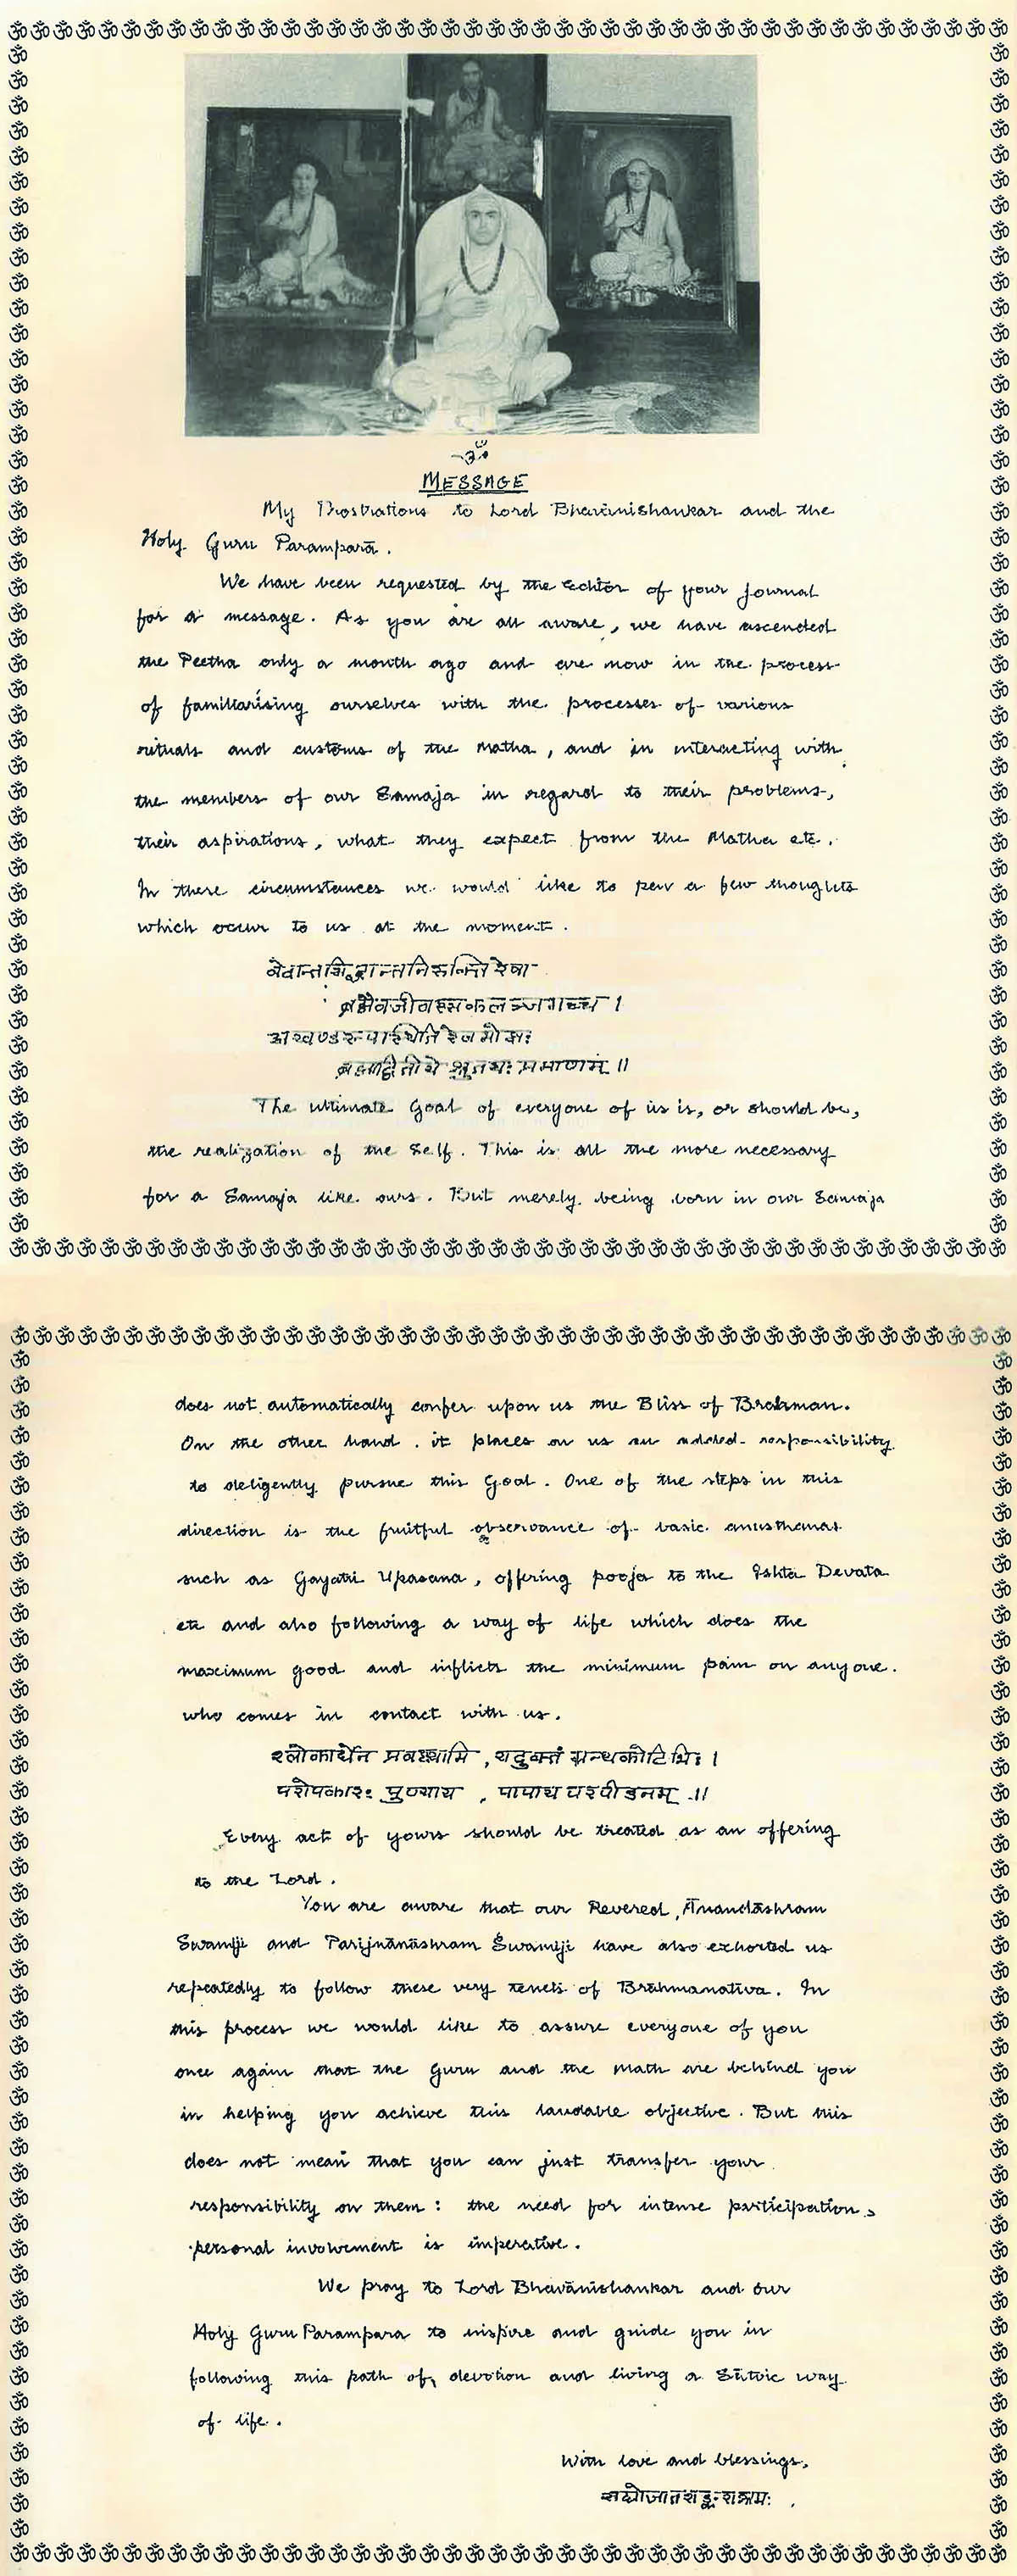 ॐ
MESSAGE
My Prostrations to Lord Bhavānishankar and the
Holy Guru Paramparā.
We have been requested by the Editor of your Journal
for a message. As you are all aware, we have ascended
the Peetha only a month ago and are now in the process
of familiarising ourselves with the processes of various
rituals and customs of the Matha, and in interacting with
the members of our Samaja in regard to their problems,
their aspirations, what they expect from the Matha etc.
In these circumstances we would like to pen a few thoughts
which occur to us at the moment.
वेदान्तसिद्धान्तनिरुक्तिरेषा
ब्रह्मैवजीवस्सकलञ्जगच्च ।
अखण्डरूपास्थितिरेवमोक्षः
ब्रह्माद्वितीये श्रुतयः प्रमाणम् ॥
The ultimate Goal of everyone of us is, or should be,
the realization of the Self. This is all the more necessary
for a Samaja like ours. But merely being born in our Samaja
does not automatically confer upon us the Bliss of Brahman.
On the other hand, it places on us an added responsibility
to deligently pursue this Goal. One of the steps in this
direction is the fruitful observance of basic anusthanas
such as Gayatri Upasana, offering pooja to the Ishta Devata
etc and also following a way of life which does the
maximum good and inflicts the minimum pain on anyone
who comes in contact with us.
श्लोकार्धेन प्रवक्ष्यामि, यदुक्तं ग्रन्थकोटिभिः ।
परोपकारः पुण्याय, पापाय परपीडनम् ॥
Every act of yours should be treated as an offering
to the Lord.
You are aware that our Revered, Ānandāshram
Swamiji and Parijnānāshram Swamiji have also exhorted us
repeatedly to follow these very tenets of Brāhmanatva. In
this process we would like to assure everyone of you
once again that the Guru and the Math are behind you
in helping you achieve this laudable objective. But this
does not mean that you can just transfer your
responsibility on them: the need for intense participation,
personal involvement is imperative.
We pray to Lord Bhavānishankar and our
Holy Guru Parampara to inspire and guide you in
following this path of devotion and living a Sātvic way
of life.
With love and blessings,
सद्योजातशङ्कराश्रमः